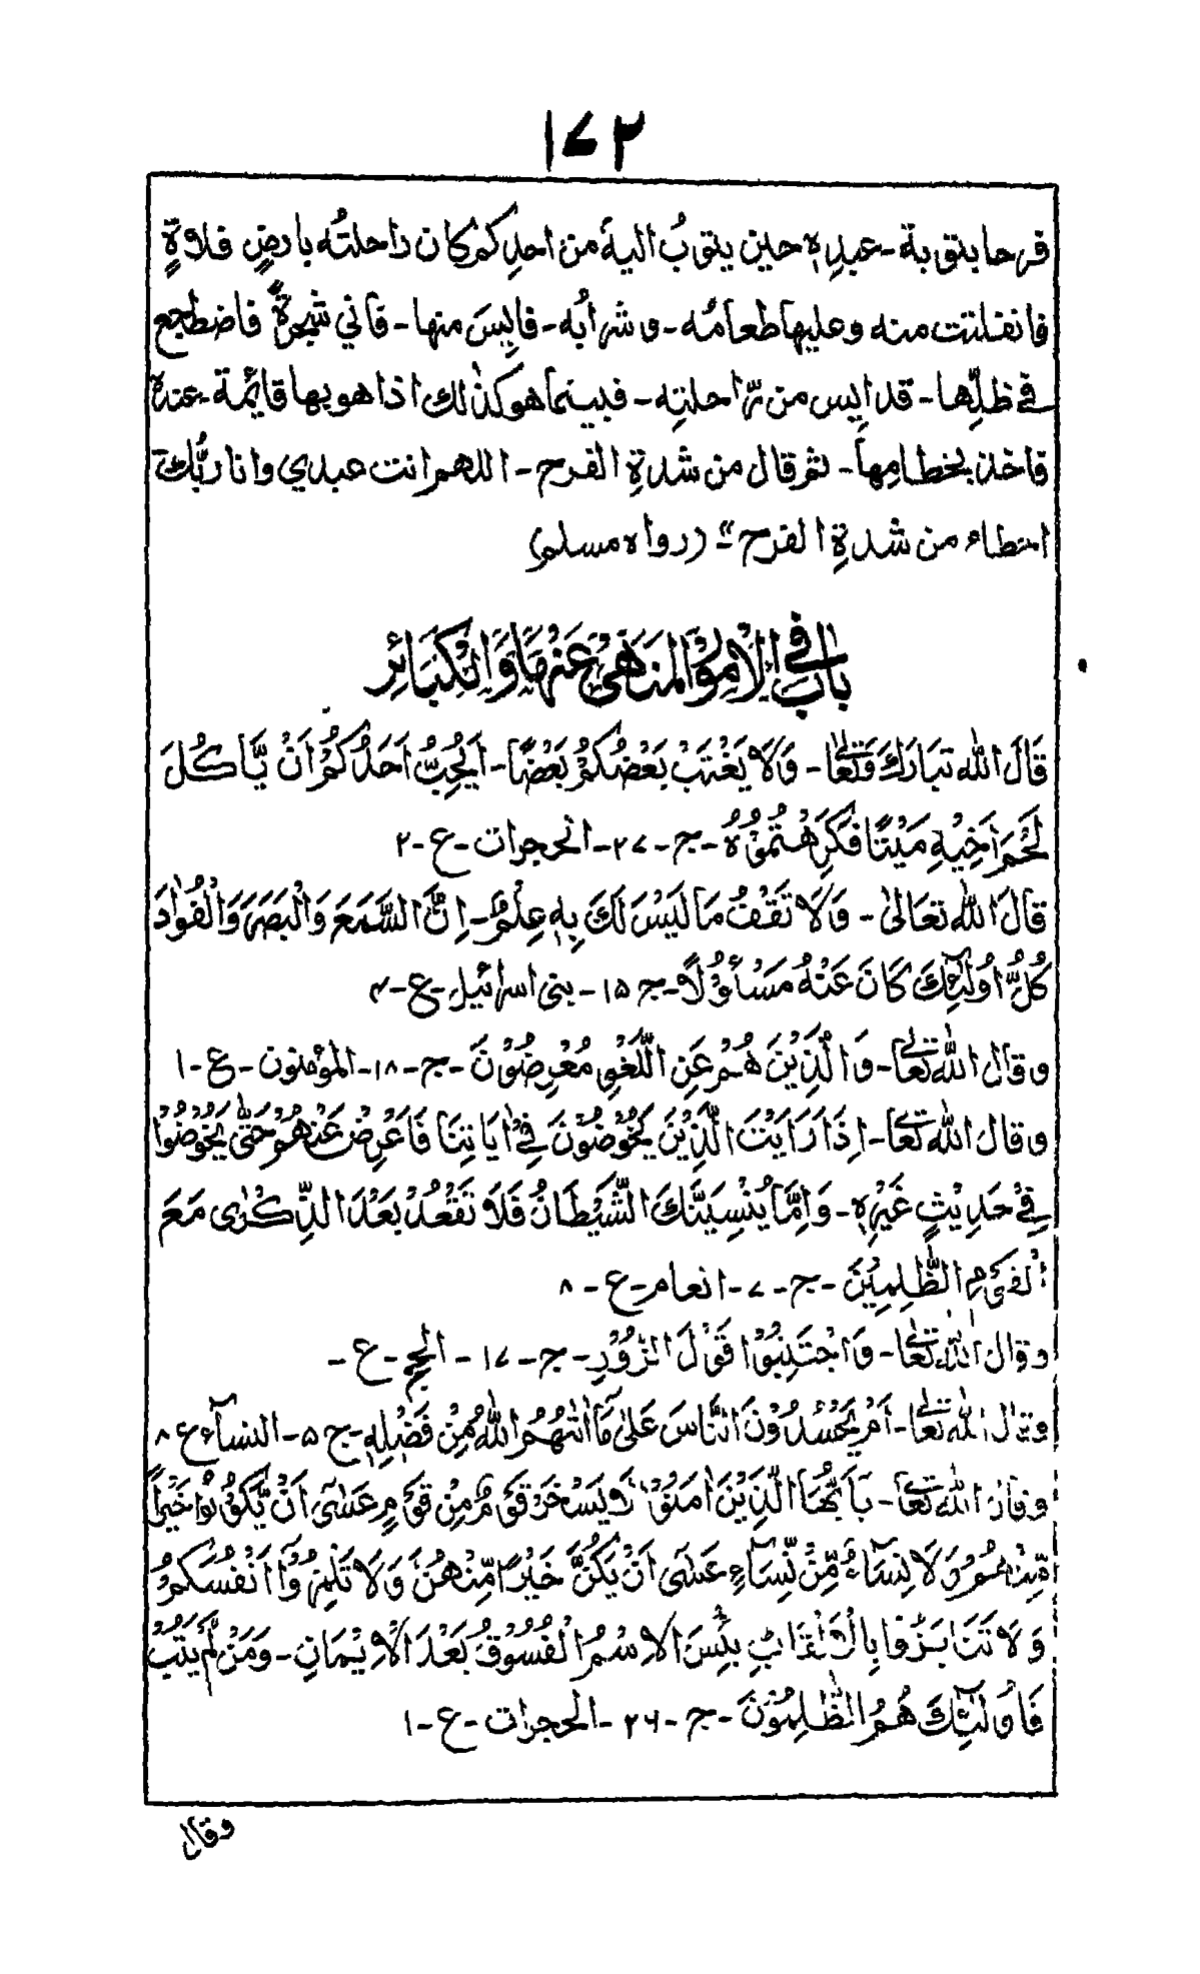 ١٧٢
فرحا بتوبة - عبدِه حين يتوبُ اليه من احدِكم كان راحلتُه بارضٍ فلاةٍ
فانفلتت منه وعليها طعامُه - وشرابُه - فايِسَ منها - فاتي شجرةً فاضطجع
في ظلِّها - قد ايِس من رّاحلتِه - فبينما هو كذٰلك اذا هو بها قائمة - عنده
فاخذ بخطامِها - ثم قال من شدةِ الفرح - اللهم انت عبدي وانا ربُّك
اخطاء من شدةِ الفرح" - (رواه مسلم)
بَابٌ فِي الْاُمُوْرِ الْمَنَاهِيْ عَنْهَا وَالْكَبَائِرِ
قَالَ اللّٰه تَبَارَكَ وَتَعَالٰى - وَلَا يَغْتَبْ بَعْضُكُمْ بَعْضًا - اَيُحِبُّ اَحَدُكُمْ اَنْ يَّاكُلَ
لَحْمَ اَخِيْهِ مَيْتًا فَكَرِهْتُمُوْهُ - ج - ٢٧ - الحجرات - ع - ٢
قالَ اللّٰه تعَالىٰ - وَلَا تَقْفُ مَا لَيْسَ لَكَ بِهٖ عِلْمٌ - اِنَّ السَّمَعَ وَالْبَصَرَ وَالْفُوٰادَ
كُلُّ اُولٰٓئِكَ كَانَ عَنْهُ مَسْأُوْلًا - ج ١٥ - بنى اسرائيل - ع - ٤
وقال اللّٰه تعَالٰى - وَالَّذِيْنَ هُمْ عَنِ اللَّغْوِ مُعْرِضُوْنَ - ج - ١٨ - المؤمنون - ع - ١
وقال اللّٰه تعَالٰى - اِذَا رَايْتَ الَّذِيْنَ يَخُوْضُوْنَ فِيْ اٰيَاتِنَا فَاَعْرِضْ عَنْهُمْ حَتّٰى يَخُوْضُوْا
فِيْ حَدِيْثٍ غَيْرِهٖ - وَاِمَّا يُنْسِيَنَّكَ الشَّيْطَانُ فَلَا تَقْعُدْ بَعْدَ الذِّكْرٰى مَعَ
الْقَوْمِ الظّٰلِمِيْنَ - ج - ٧ - انعام - ع - ٨
وقال اللّٰه تعَالٰى - وَاجْتَنِبُوْا قَوْلَ الزُّوْرِ - ج - ١٧ - الحج - ع -
وقال اللّٰه تعَالٰى - اَمْ يَحْسُدُوْنَ النَّاسَ عَلٰى مَا اٰتٰهُمُ اللّٰهُ مِنْ فَضْلِهٖ - ج ٥ - النسآء ع ٨
وقال اللّٰه تعَالٰى - يٰاَيُّهَا الَّذِيْنَ اٰمَنُوْا لَا يَسْخَرْ قَوْمٌ مِنْ قَوْمٍ عَسٰى اَنْ يَّكُوْنُوْا خَيْرًا
مِّنْهُمْ وَلَا نِسَآءٌ مِّنْ نِّسَآءٍ عَسٰى اَنْ يَكُنَّ خَيْرًا مِّنْهُنَّ وَلَا تَلْمِزُوْا اَنْفُسَكُمْ
وَلَا تَنَابَزُوْا بِالْاَلْقَابِ بِئْسَ الاِسْمُ الْفُسُوْقُ بَعْدَ الْاِيْمَانِ - وَمَنْ لَّمْ يَتُبْ
فَاُولٰٓئِكَ هُمُ الظّٰلِمُوْنَ - ج - ٢٦ - الحجرات - ع - ١
وقال